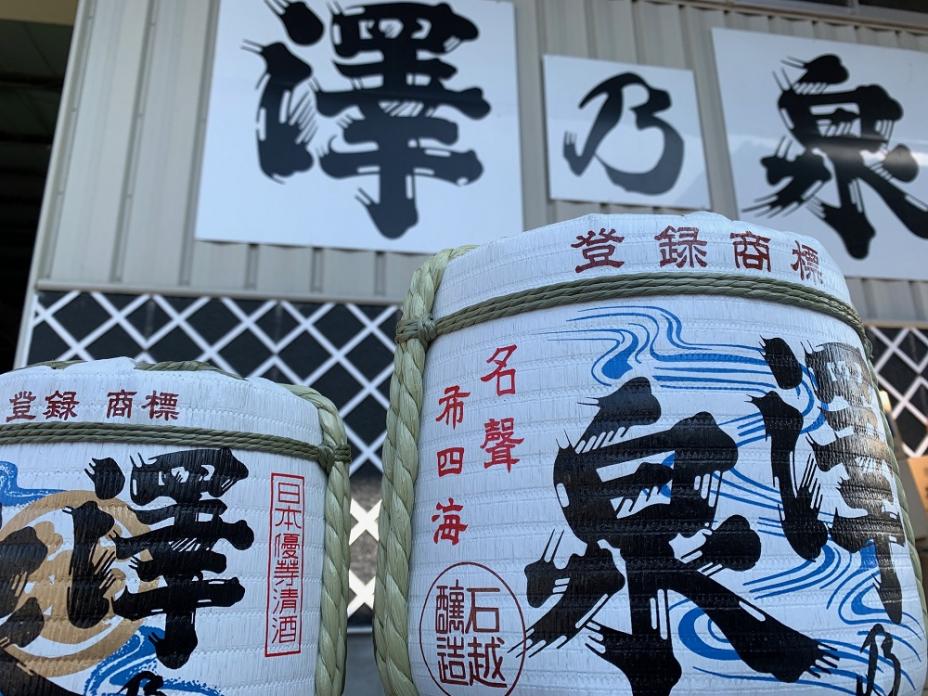 澤乃泉
登録商標
名聲
布四海
澤乃
泉
石越
醸造
登録商標
澤乃
日本優等清酒